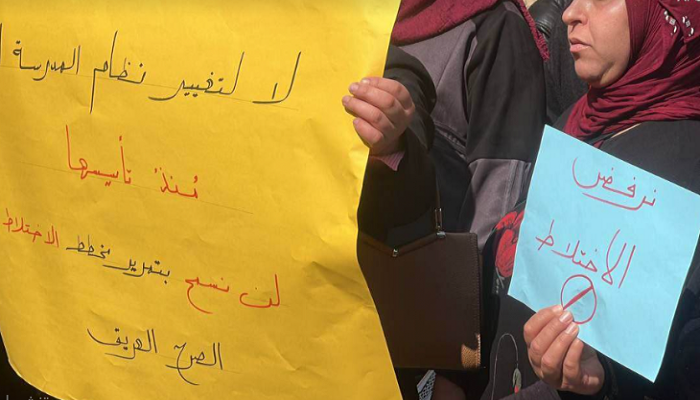 لا لتغيير نظام المدرسة
مُنذُ تأسيسها
لن نسمح بتمرير مخطط الاختلاط
الصرح العريق
نرفض
الاختلاط